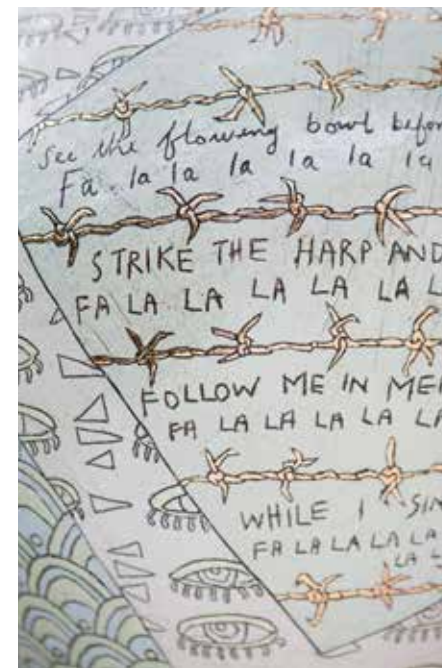 See the flowing bowl befor
Fa la la la la la la
STRIKE THE HARP AND
FA LA LA LA LA LA L
FOLLOW ME IN MER
FA LA LA LA LA LA
WHILE I SIN
FA LA LA LA LA LA
LA L